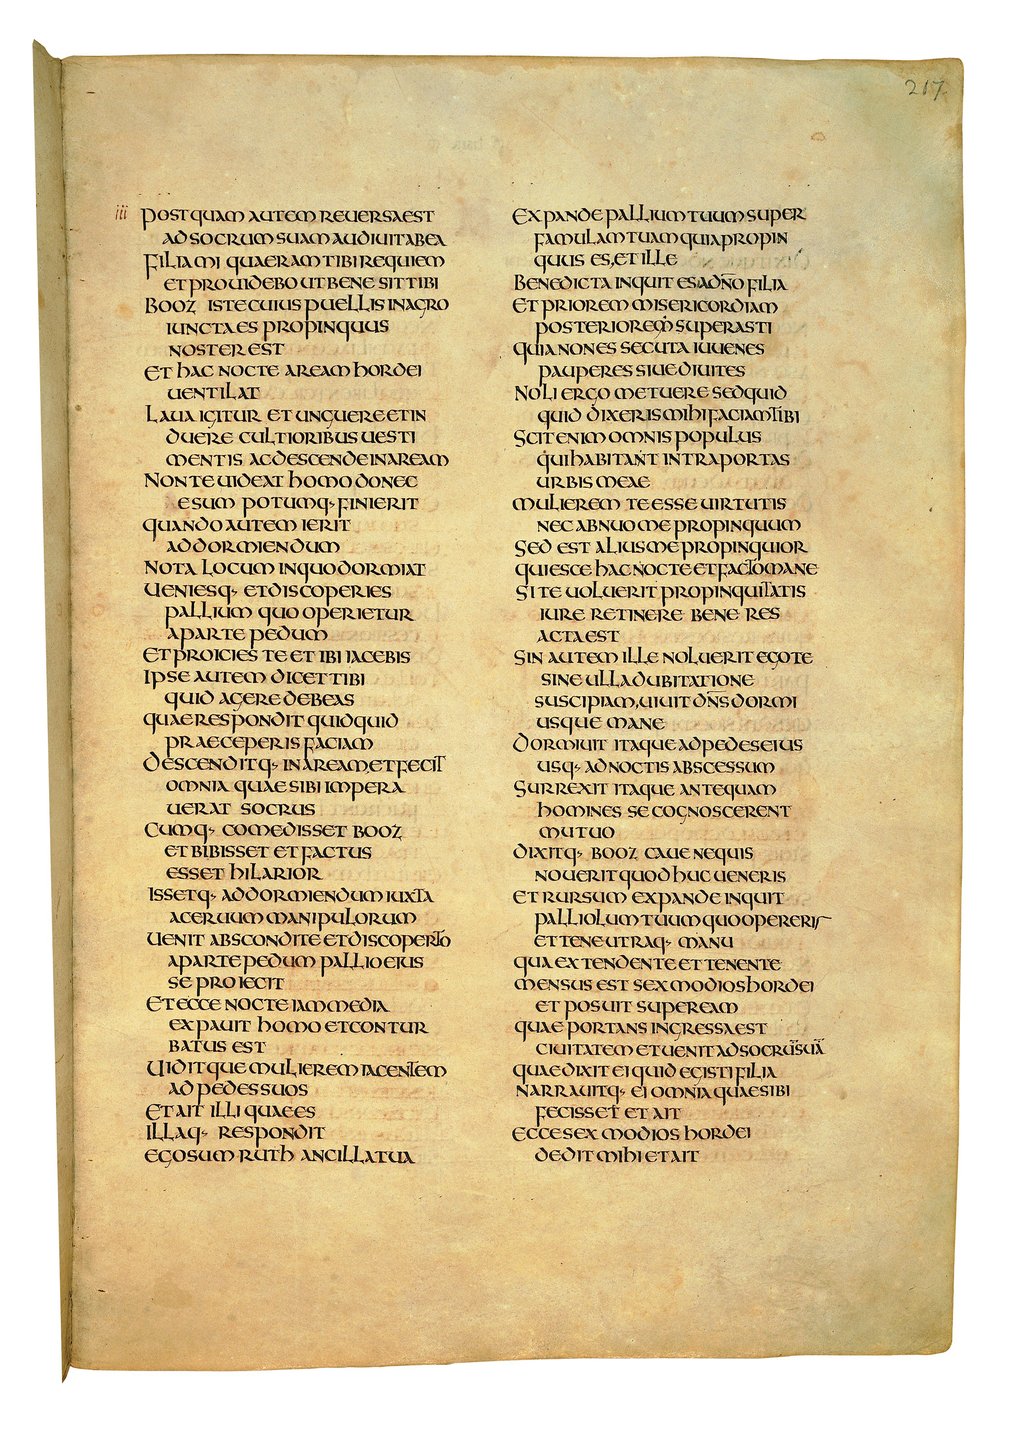 217
iii POSTQUAM AUTEM REUERSA EST
AD SOCRUM SUAM AUDIUIT AB EA
FILIA MI QUAERAM TIBI REQUIEM
ET PROUIDEBO UT BENE SIT TIBI
BOOZ ISTE CUIUS PUELLIS IN AGRO
IUNCTA ES PROPINQUUS
NOSTER EST
ET HAC NOCTE AREAM HORDEI
UENTILAT
LAUA IGITUR ET UNGUERE ET IN
DUERE CULTIORIBUS UESTI
MENTIS AC DESCENDE IN AREAM
NON TE UIDEAT HOMO DONEC
ESUM POTUMQ· FINIERIT
QUANDO AUTEM IERIT
AD DORMIENDUM
NOTA LOCUM IN QUO DORMIAT
UENIESQ· ET DISCOPERIES
PALLIUM QUO OPERIETUR
A PARTE PEDUM
ET PROICIES TE ET IBI IACEBIS
IPSE AUTEM DICET TIBI
QUID AGERE DEBEAS
QUAE RESPONDIT QUIDQUID
PRAECEPERIS FACIAM
DESCENDITQ· IN AREAM, ET FECIT
OMNIA QUAE SIBI IMPERA
UERAT SOCRUS
CUMQ· COMEDISSET BOOZ
ET BIBISSET ET FACTUS
ESSET HILARIOR
ISSETQ· AD DORMIENDUM IUXTA
ACERUUM MANIPULORUM
UENIT ABSCONDITE ET DISCOPERTO
A PARTE PEDUM PALLIO EIUS
SE PROIECIT
ET ECCE NOCTE IAM MEDIA
EXPAUIT HOMO ET CONTUR
BATUS EST
UIDITQUE MULIEREM IACENTEM
AD PEDES SUOS
ET AIT ILLI QUAE ES
ILLAQ· RESPONDIT
EGO SUM RUTH ANCILLA TUA
EXPANDE PALLIUM TUUM SUPER
FAMULAM TUAM QUIA PROPIN
QUUS ES, ET ILLE
BENEDICTA INQUIT ES A DÑO FILIA
ET PRIOREM MISERICORDIAM
POSTERIOREM SUPERASTI
QUIA NON ES SECUTA IUUENES
PAUPERES SIUE DIUITES
NOLI ERGO METUERE SED QUID
QUID DIXERIS MIHI FACIAM TIBI
SCIT ENIM OMNIS POPULUS
QUI HABITANT INTRA PORTAS
URBIS MEAE
MULIEREM TE ESSE UIRTUTIS
NEC ABNUO ME PROPINQUUM
SED EST ALIUS ME PROPINQUIOR
QUIESCE HAC NOCTE ET FACTO MANE
SI TE UOLUERIT PROPINQUITATIS
IURE RETINERE BENE RES
ACTA EST
SIN AUTEM ILLE NOLUERIT EGO TE
SINE ULLA DUBITATIONE
SUSCIPIAM, UIUIT DN̅S DORMI
USQUE MANE
DORMIUIT ITAQUE AD PEDES EIUS
USQ· AD NOCTIS ABSCESSUM
SURREXIT ITAQUE ANTEQUAM
HOMINES SE COGNOSCERENT
MUTUO
DIXITQ· BOOZ CAUE NE QUIS
NOUERIT QUOD HUC UENERIS
ET RURSUM EXPANDE INQUIT
PALLIOLUM TUUM QUO OPERERIS
ET TENE UTRAQ· MANU
QUA EXTENDENTE ET TENENTE
MENSUS EST SEX MODIOS HORDEI
ET POSUIT SUPER EAM
QUAE PORTANS INGRESSA EST
CIUITATEM ET UENIT AD SOCRŪ SUĀ
QUAE DIXIT EI QUID EGISTI FILIA
NARRAUITQ· EI OMNIA QUAE SIBI
FECISSET ET AIT
ECCE SEX MODIOS HORDEI
DEDIT MIHI ET AIT